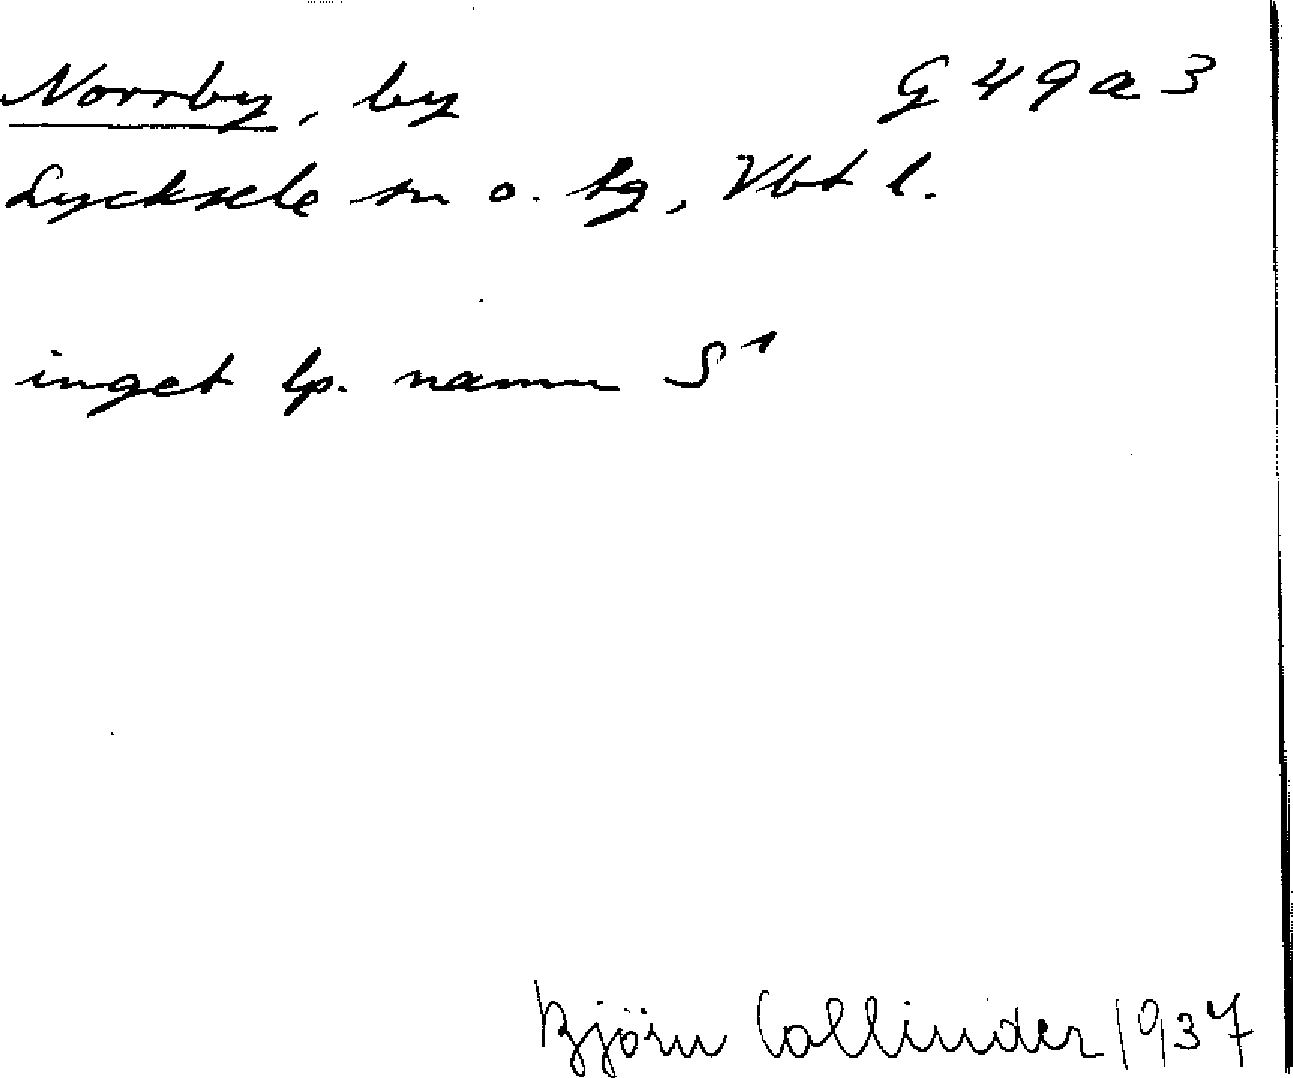 Norrby, by G 49 a 3
Lycksele sn o. tg, Vbt l.
inget lp. namn S¹
Björn Collinder 1937